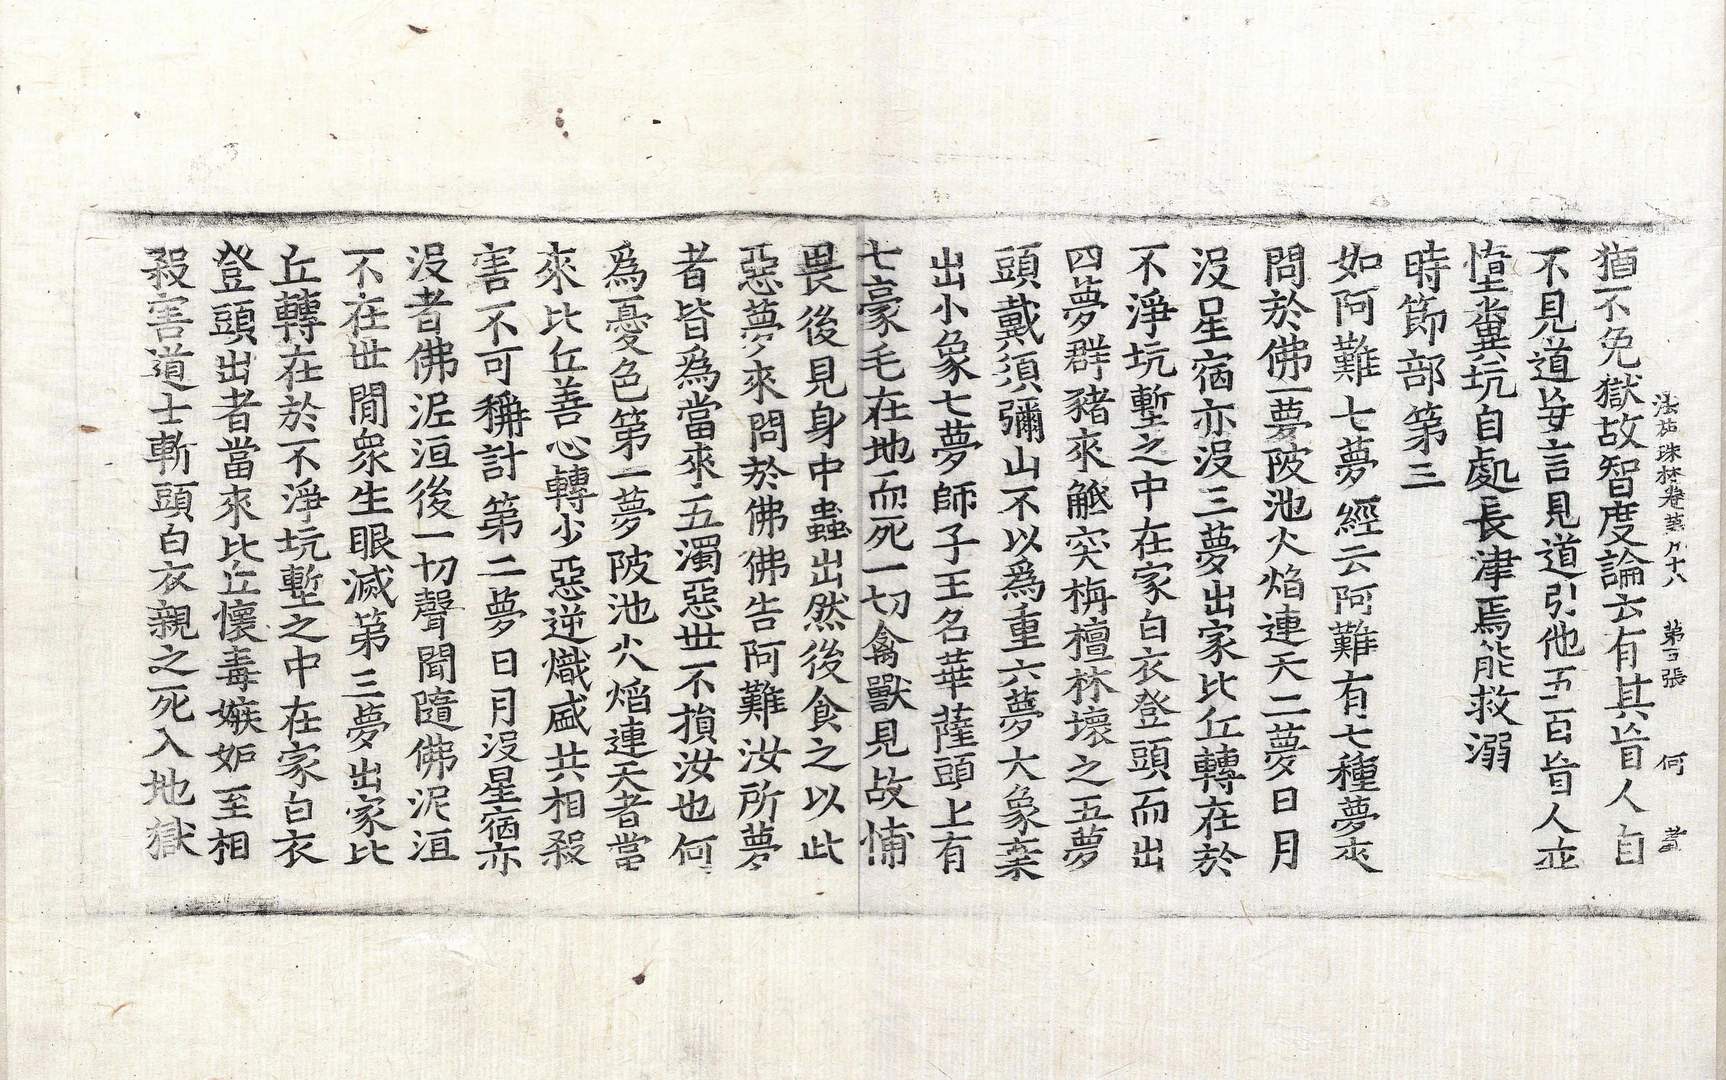 法苑珠林卷第九十八 第三張 何
猶不免獄故智度論云有其盲人自
不見道妄言見道引他五百盲人亦
墮糞坑自處長津焉能救溺
時節部第三
如阿難七夢經云阿難有七種夢來
問於佛一夢陂池火焰連天二夢日月
没星宿亦没三夢出家比丘轉在於
不淨坑塹之中在家白衣登頭而出
四夢群猪來觝突栴檀林壞之五夢
頭戴須彌山不以爲重六夢大象棄
出小象七夢師子王名華薩頭上有
七豪毛在地而死一切禽獸見故怖
畏後見身中蟲出然後食之以此
惡夢來問於佛佛告阿難汝所夢
者皆爲當來五濁惡世不損汝也何
爲憂色第一夢陂池火焰連天者當
來比丘善心轉少惡逆熾盛共相殺
害不可稱計第二夢日月没星宿亦
没者佛泥洹後一切聲聞隨佛泥洹
不在世閒衆生眼滅第三夢出家比
丘轉在於不淨坑塹之中在家白衣
登頭出者當來比丘懷毒嫉妒至相
殺害道士斬頭白衣親之死入地獄